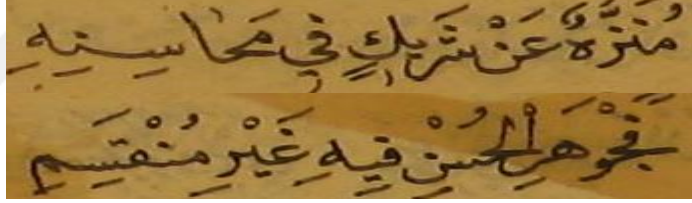 مُنَزَّهٌ عَنْ شَرِيكٍ فِي مَحَاسِنِهِ
فَجَوْهَرِ الْحُسْنِ فِيهِ غَيْرِ مُنْقَسِمِ